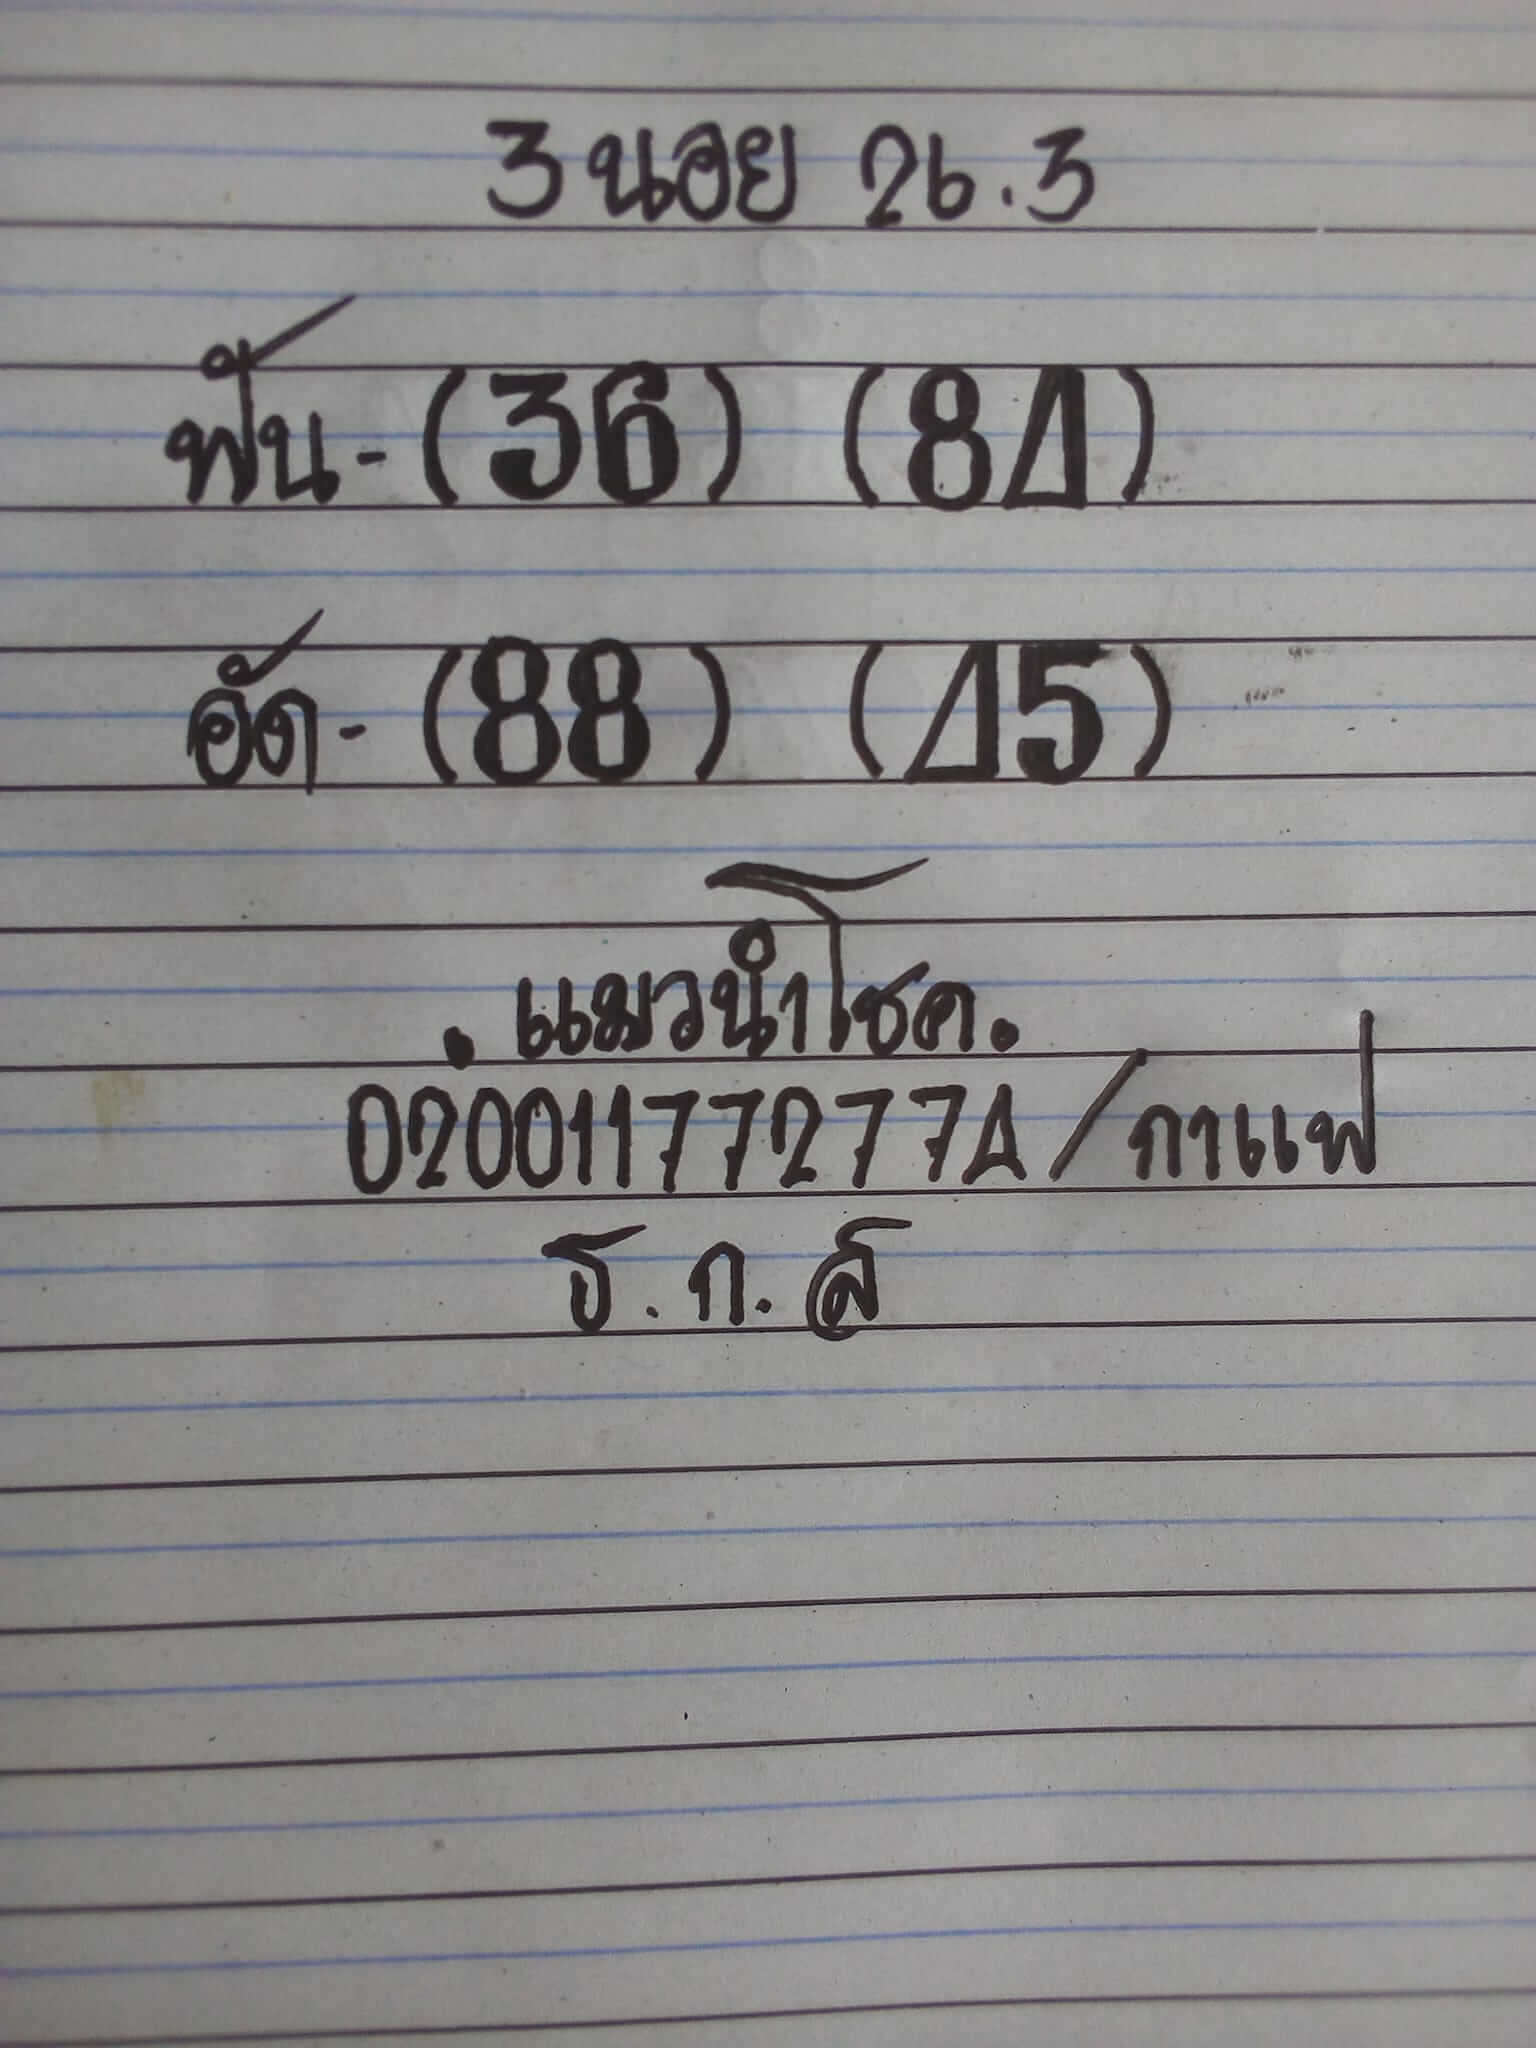 3 นอย 26.3
ฟัน - (36) (84)
อัด - (88) (45)
. แมวนำโชค .
020011772774 / กาแฟ
ธ.ก.ส